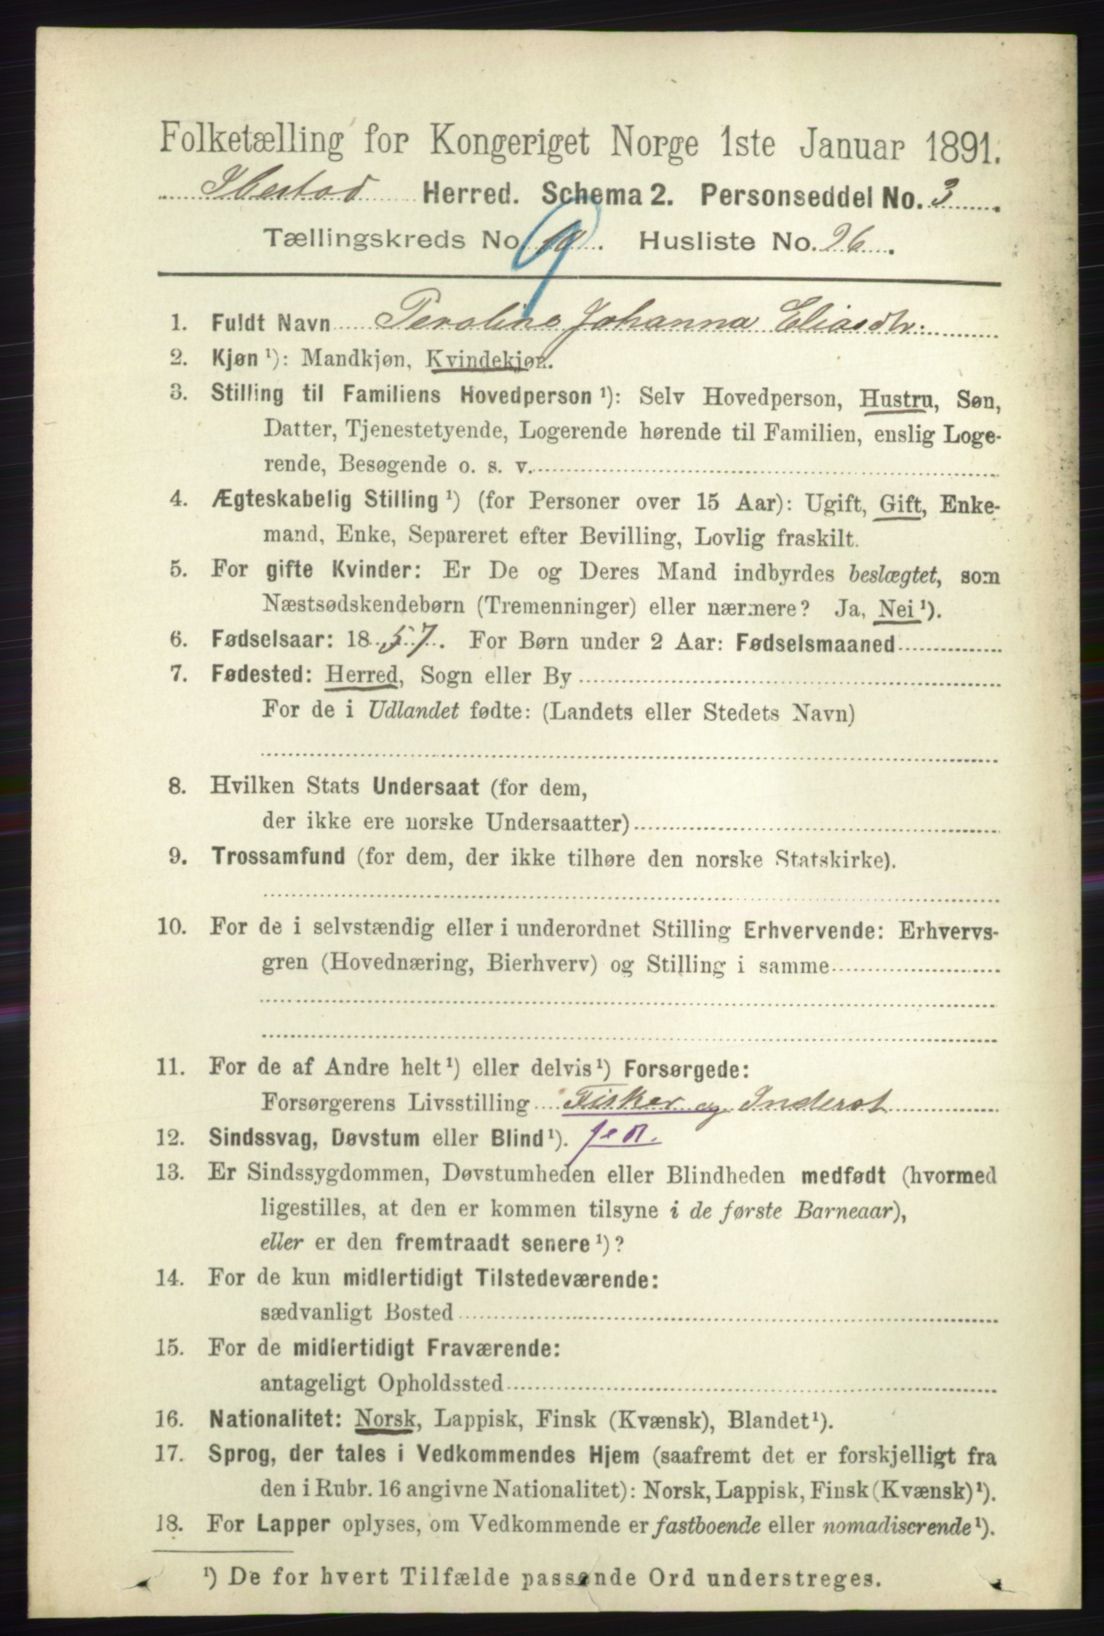 Folketælling for Kongeriget Norge 1ste Januar 1891.
Ibestad Herred. Schema 2. Personseddel No. 3
Tællingskreds No. 9. Husliste No. 26.
1. Fuldt Navn Peroline Johanna Eliasdtr.
2. Kjøn ¹): Mandkjøn, Kvindekjøn.
3. Stilling til Familiens Hovedperson ¹): Selv Hovedperson, Hustru, Søn,
Datter, Tjenestetyende, Logerende hørende til Familien, enslig Loge-
rende, Besøgende o. s. v.
4. Ægteskabelig Stilling ¹) (for Personer over 15 Aar): Ugift, Gift, Enke-
mand, Enke, Separeret efter Bevilling, Lovlig fraskilt.
5. For gifte Kvinder: Er De og Deres Mand indbyrdes beslægtet, som
Næstsødskendebørn (Tremenninger) eller nærmere? Ja, Nei ¹).
6. Fødselsaar: 1857. For Børn under 2 Aar: Fødselsmaaned
7. Fødested: Herred, Sogn eller By
For de i Udlandet fødte: (Landets eller Stedets Navn)
8. Hvilken Stats Undersaat (for dem,
der ikke ere norske Undersaatter)
9. Trossamfund (for dem, der ikke tilhøre den norske Statskirke).
10. For de i selvstændig eller i underordnet Stilling Erhvervende: Erhvervs-
gren (Hovednæring, Bierhverv) og Stilling i samme
11. For de af Andre helt ¹) eller delvis ¹) Forsørgede:
Forsørgerens Livsstilling Fisker og Inderst
12. Sindssvag, Døvstum eller Blind ¹).
13. Er Sindssygdommen, Døvstumheden eller Blindheden medfødt (hvormed
ligestilles, at den er kommen tilsyne i de første Barneaar),
eller er den fremtraadt senere ¹)?
14. For de kun midlertidigt Tilstedeværende:
sædvanligt Bosted
15. For de midlertidigt Fraværende:
antageligt Opholdssted
16. Nationalitet: Norsk, Lappisk, Finsk (Kvænsk), Blandet ¹).
17. Sprog, der tales i Vedkommendes Hjem (saafremt det er forskjelligt fra
den i Rubr. 16 angivne Nationalitet): Norsk, Lappisk, Finsk (Kvænsk) ¹).
18. For Lapper oplyses, om Vedkommende er fastboende eller nomadiserende ¹).
¹) De for hvert Tilfælde passende Ord understreges.